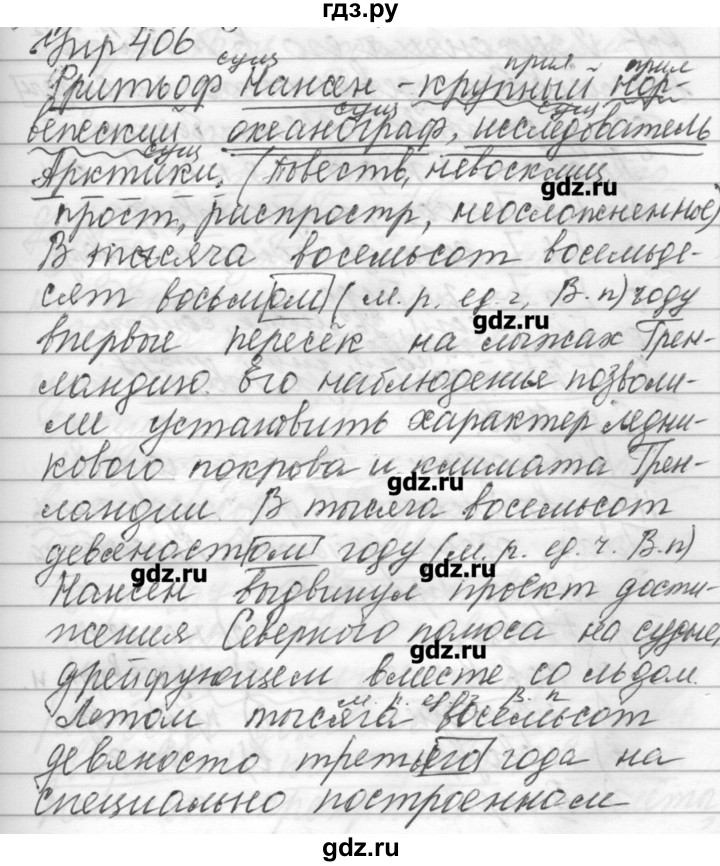 гдз.ру
Упр 406
сущ прил прил
Фритьоф Нансен - крупный нор-
сущ сущ
вежский океанограф, исследователь
сущ
Арктики. (повеств, невосклиц
gdz.ru
прост, распростр, неосложненное)
В тысяча восемьсот восемьде-
сят восьмом (м.р. ед.ч, В.п) году
gdz.ru
впервые пересёк на лыжах Грен-
ландию. Его наблюденья позволи-
ли установить характер ледни-
кового покрова и климата Грен-
gdz.ru
ландии. В тысяча восемьсот
девяностом году (м.р. ед.ч. В.п)
gdz.ru gdz.ru
Нансен выдвинул проект дости-
жения Северного полюса на судне,
gdz.ru
дрейфующем вместе со льдом.
м. р. ед.ч. В. п
Летом тысяча восемьсот
девяносто третьего года на
специально построенном
gdz.ru